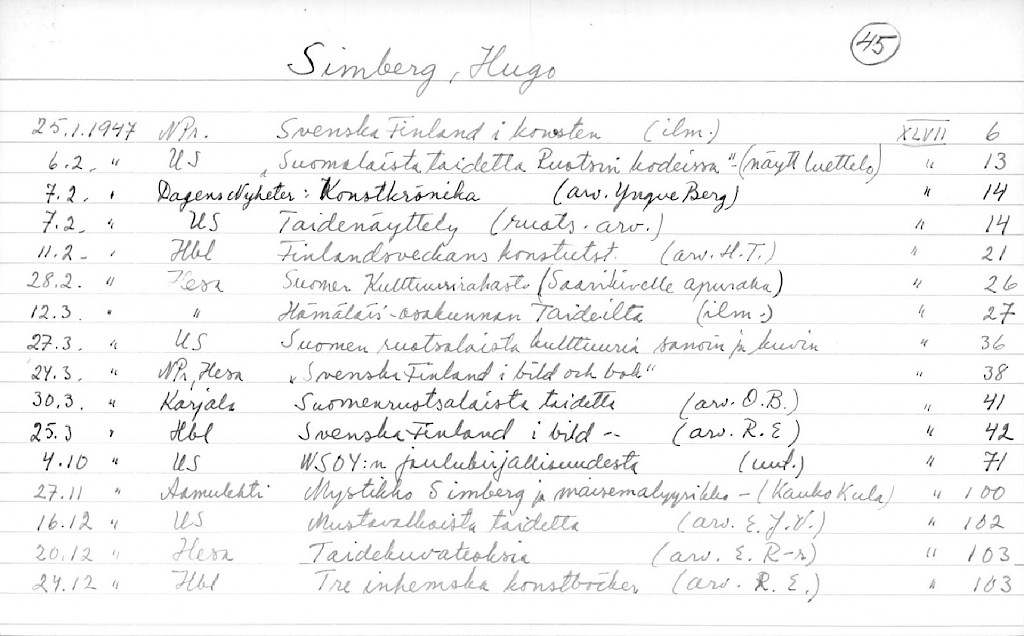 45
Simberg, Hugo
25.1.1947 NPr. Svenska Finland i konsten (ilm.) XLVII 6
6.2. " US "Suomalaista taidetta Ruotsin kodeissa" - (näytt luettelo) " 13
7.2. " Dagens Nyheter: Konstkrönika (arv. Yngve Berg) " 14
7.2. " US Taidenäyttely (ruots. arv.) " 14
11.2 - " Hbl Finlandsveckans konstutst. (arv. H.T.) " 21
28.2. " Hesa Suomen Kulttuurirahasto (Saarikivelle apuraha) " 26
12.3. " " Hämäläis-osakunnan Taideilta (ilm.) " 27
27.3. " US Suomen ruotsalaista kulttuuria sanoin ja kuvin " 36
24.3. " NPr, Hesa "Svenska Finland i bild och bok" " 38
30.3. " Karjala Suomenruotsalaista taidetta (arv. O.B.) " 41
25.3 " Hbl Svenska Finland i bild -- (arv. R.E) " 42
4.10 " US WSOY:n joulukirjallisuudesta (uut.) " 71
27.11 " Aamulehti Mystikko Simberg ja maisemalyyrikko - (Kauko Kula) " 100
16.12 " US Mustavalkoista taidetta (arv. E.J.V.) " 102
20.12 " Hesa Taidekuvateoksia (arv. E. R-r) " 103
24.12 " Hbl Tre inhemska konstböcker (arv. R.E.) " 103